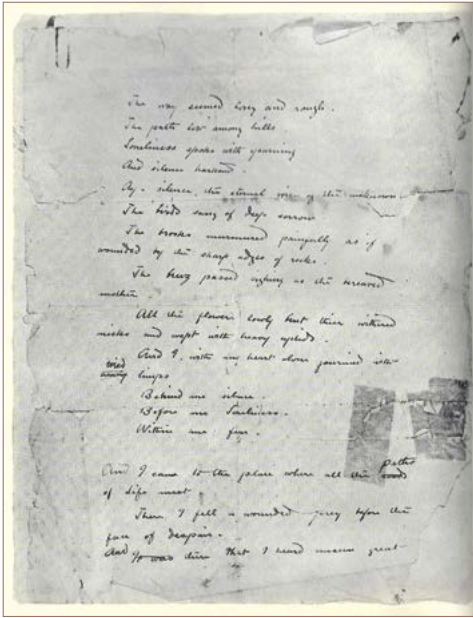 The way seemed long and rough.
The path lost among hills
Loneliness spoke with yearning
And silence
Ay. silence, the eternal voice of the unknown
The birds sang of deep sorrow
The brooks murmured painfully as if
wounded by the sharp edges of rocks.
The passed sighing as the bereaved
mother.
All the flowers lowly bent their withered
necks and wept with heavy eyelids.
And I, with my heart alone journied with
tired limps
Behind me silence.
Before me Loneliness.
Within me fear.
And I came to the place where all the paths
of Life meet
There I fell a wounded prey before the
face of despair.
And It was then that I heard great